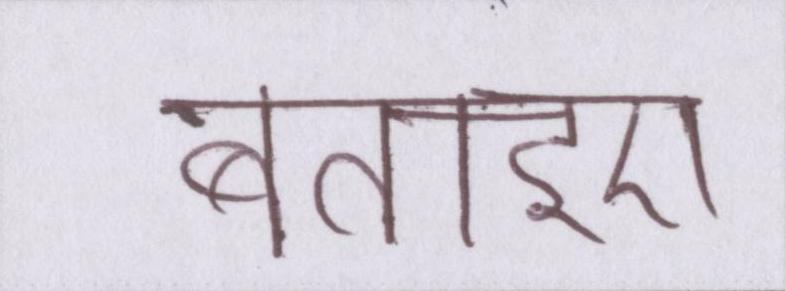 बताइए